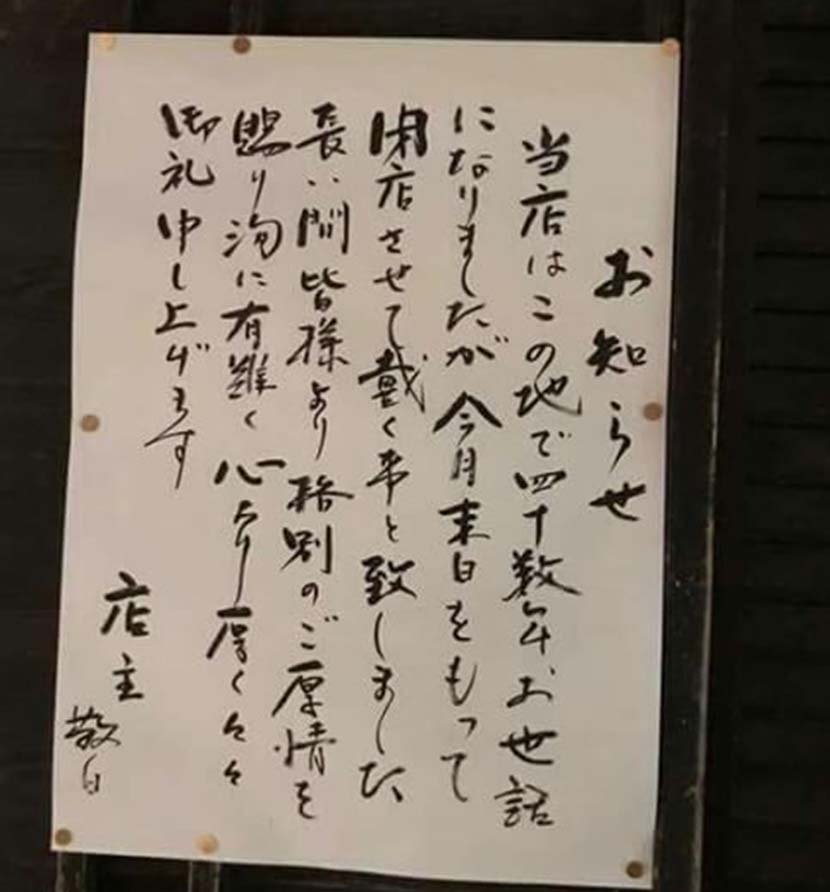 お知らせ
当店はこの地で四十数年お世話
になりましたが今月末日をもって
閉店させて戴く事と致しました
長い間皆様より格別のご厚情を
賜り洵に有難く心より厚く々々
御礼申し上げます
店主
敬白